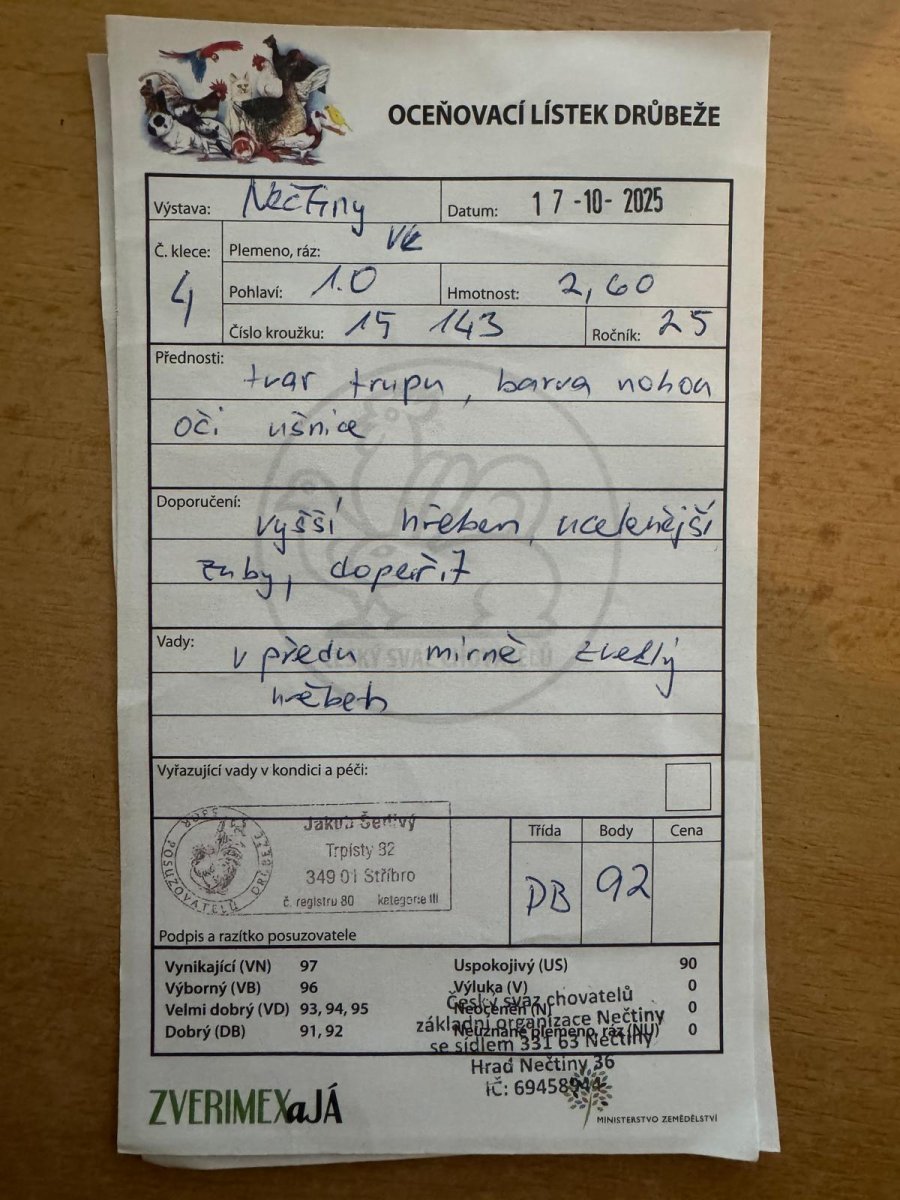 OCEŇOVACÍ LÍSTEK DRŮBEŽE
Výstava: Nečtiny Datum: 17-10-2025
Č. klece: 4 Plemeno, ráz: VK
Pohlaví: 1.0 Hmotnost: 2,60
Číslo kroužku: 15 143 Ročník: 25
Přednosti: tvar trupu, barva nohou
oči ušnice
Doporučení: vyšší hřeben, ucelenější
zuby, dopeřit
Vady: v předu mírně zvedlý
hřeben
Vyřazující vady v kondici a péči:
SBOR POSUZOVATELŮ DRŮBEŽE
Jakub Šedivý
Trpísty 32
349 01 Stříbro
č. registru 80 kategorie III
Podpis a razítko posuzovatele
Třída Body Cena
DB 92
Vynikající (VN) 97 Uspokojivý (US) 90
Výborný (VB) 96 Výluka (V) 0
Velmi dobrý (VD) 93, 94, 95 Neoceněn (N) 0
Dobrý (DB) 91, 92 Neuznané plemeno, ráz (NU) 0
Český svaz chovatelů
základní organizace Nečtiny
se sídlem 331 63 Nečtiny
Hrad Nečtiny 36
IČ: 69458944
ZVERIMEXaJÁ
MINISTERSTVO ZEMĚDĚLSTVÍ
ČESKÝ SVAZ CHOVATELŮ